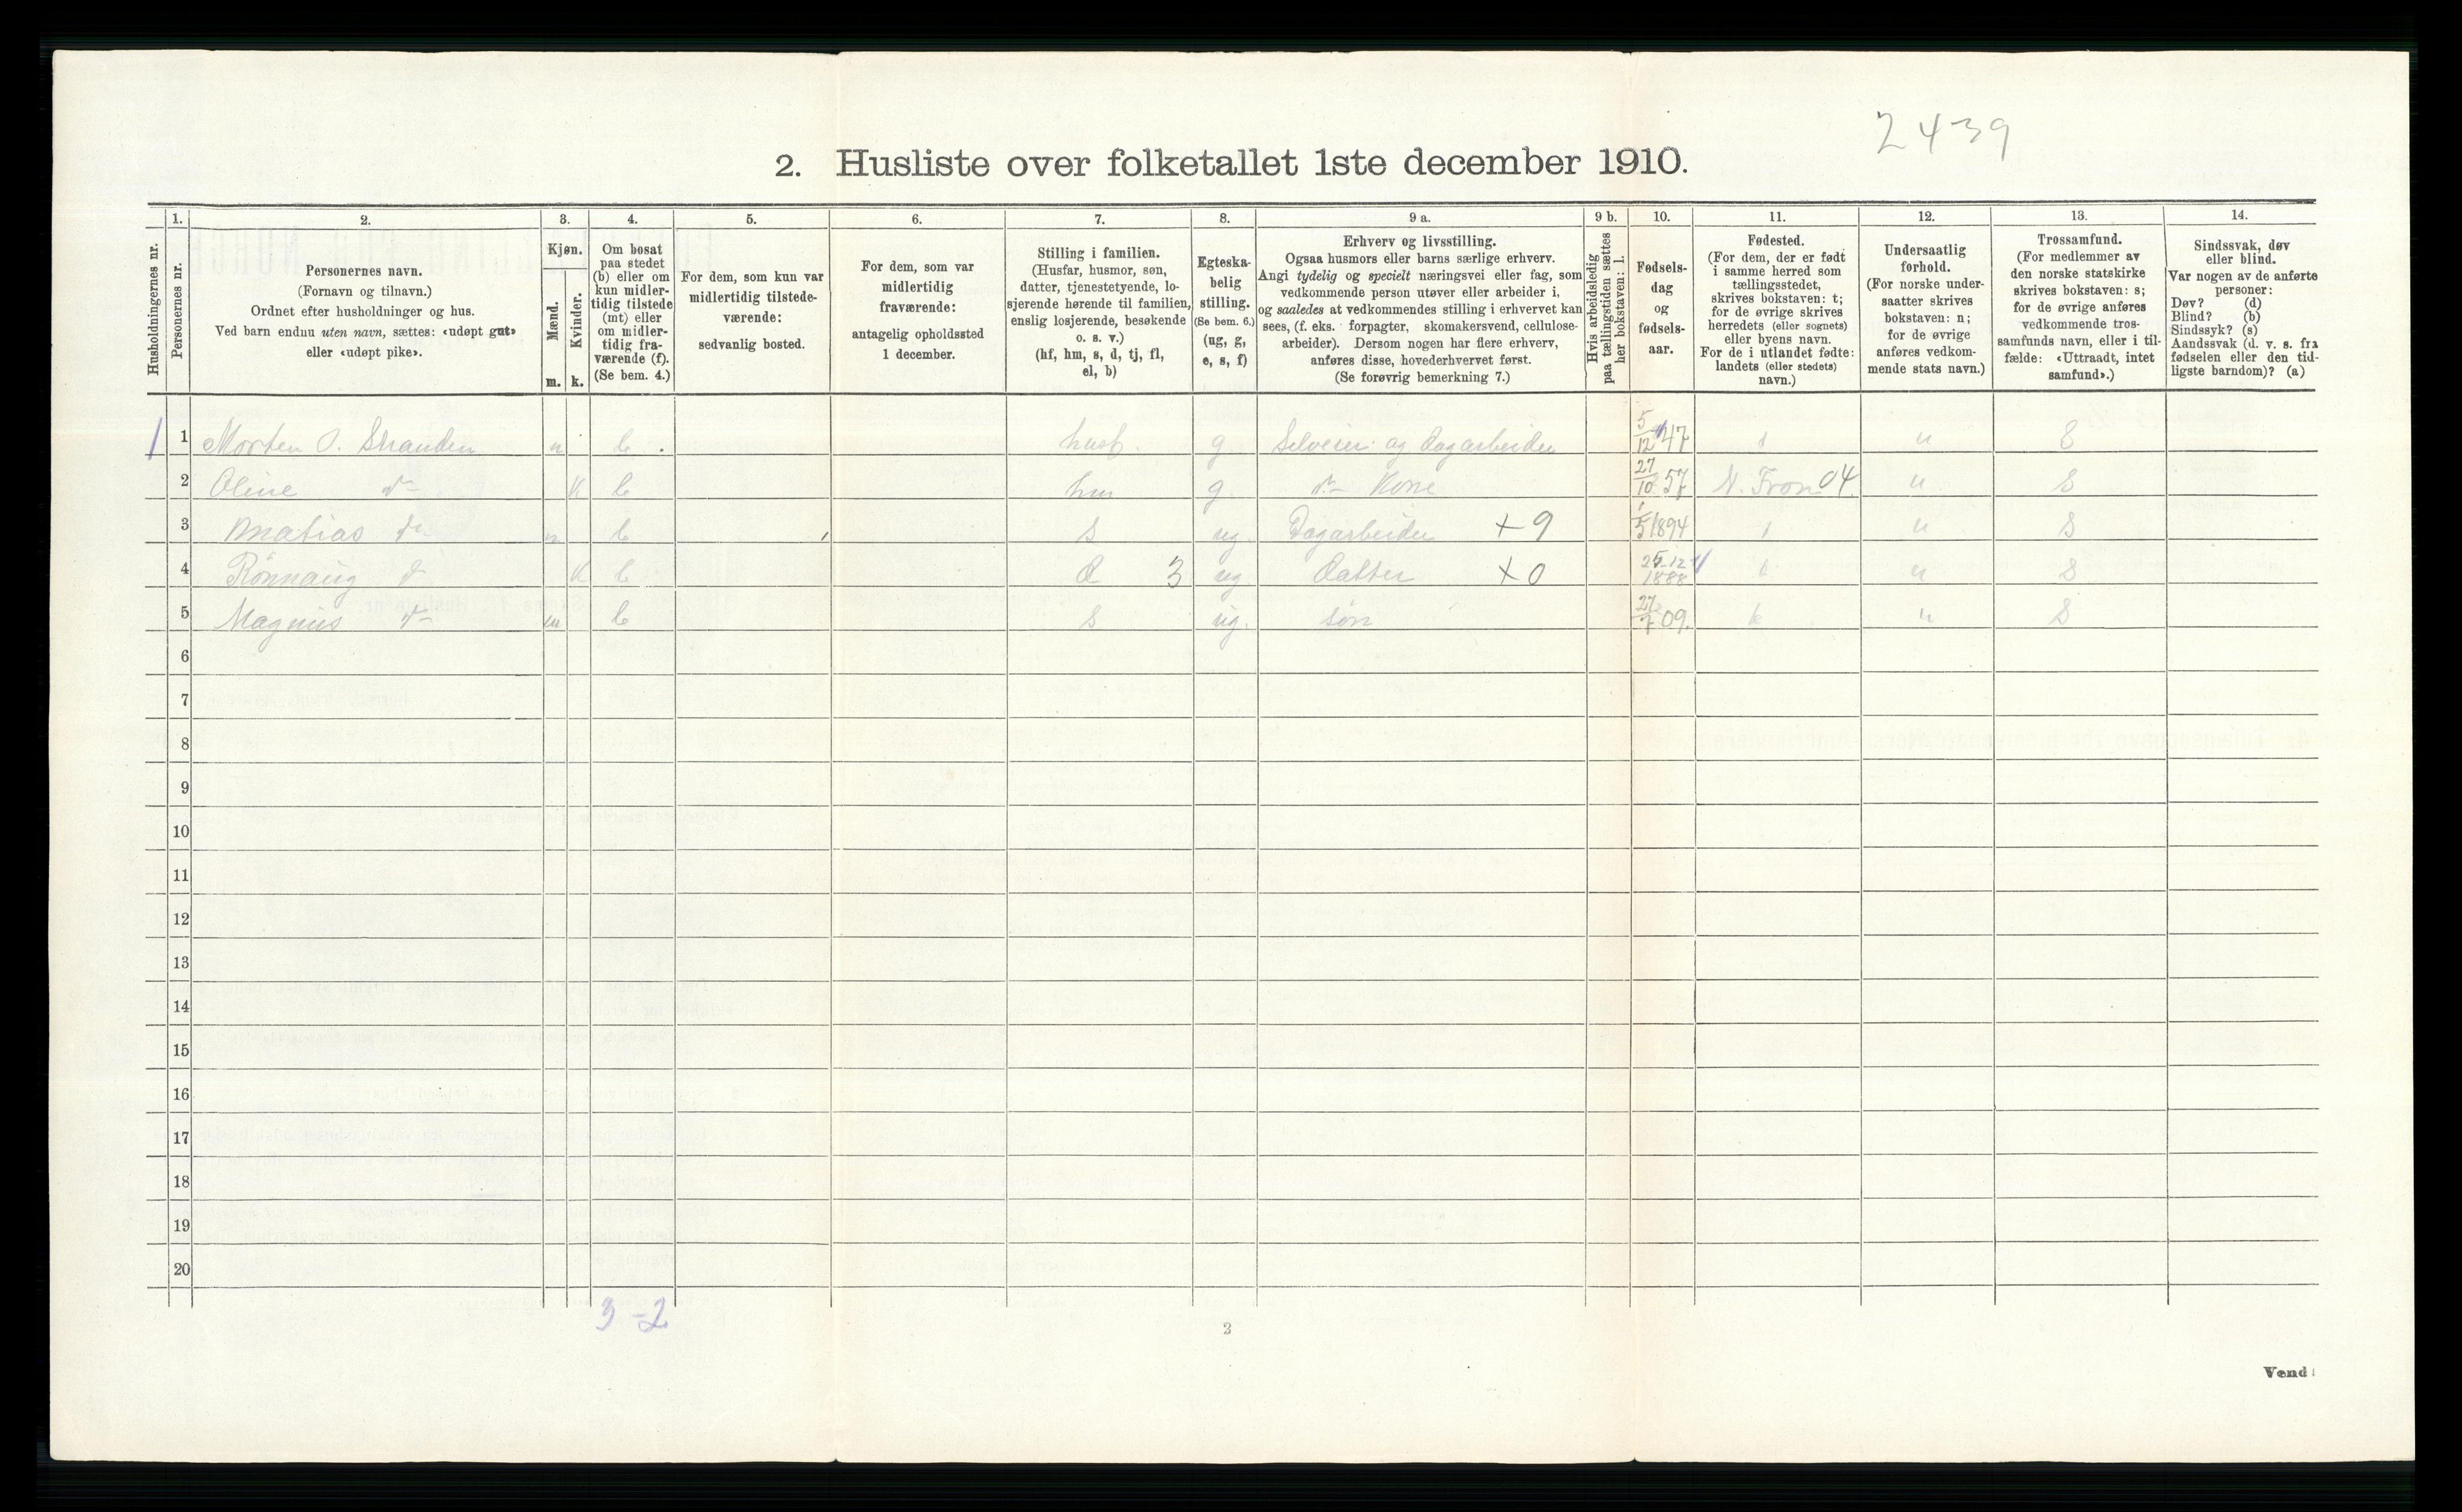 2439
2. Husliste over folketallet 1ste december 1910.
Husholdningernes nr.
1. Personernes nr.
2. Personernes navn.
(Fornavn og tilnavn.)
Ordnet efter husholdninger og hus.
Ved barn endnu uten navn, sættes: «udøpt gut»
eller «udøpt pike».
3. Kjøn.
Mænd. m.
Kvinder. k.
4. Om bosat
paa stedet
(b) eller om
kun midler-
tidig tilstede
(mt) eller
om midler-
tidig fra-
værende (f).
(Se bem. 4.)
5. For dem, som kun var
midlertidig tilstede-
værende:
sedvanlig bosted.
6. For dem, som var
midlertidig
fraværende:
antagelig opholdssted
1 december.
7. Stilling i familien.
(Husfar, husmor, søn,
datter, tjenestetyende, lo-
sjerende hørende til familien,
enslig losjerende, besøkende
o. s. v.)
(hf, hm, s, d, tj, fl,
el, b)
8. Egteska-
belig
stilling.
(Se bem. 6.)
(ug, g,
e, s, f)
9 a. Erhverv og livsstilling.
Ogsaa husmors eller barns særlige erhverv.
Angi tydelig og specielt næringsvei eller fag, som
vedkommende person utøver eller arbeider i,
og saaledes at vedkommendes stilling i erhvervet kan
sees, (f. eks. forpagter, skomakersvend, cellulose-
arbeider). Dersom nogen har flere erhverv,
anføres disse, hovederhvervet først.
(Se forøvrig bemerkning 7.)
9 b. Hvis arbeidsledig
paa tællingstiden sættes
her bokstaven: l.
10. Fødsels-
dag
og
fødsels-
aar.
11. Fødested.
(For dem, der er født
i samme herred som
tællingsstedet,
skrives bokstaven: t;
for de øvrige skrives
herredets (eller sognets)
eller byens navn.
For de i utlandet fødte:
landets (eller stedets)
navn.)
12. Undersaatlig
forhold.
(For norske under-
saatter skrives
bokstaven: n;
for de øvrige
anføres vedkom-
mende stats navn.)
13. Trossamfund.
(For medlemmer av
den norske statskirke
skrives bokstaven: s;
for de øvrige anføres
vedkommende tros-
samfunds navn, eller i til-
fælde: «Uttraadt, intet
samfund».)
14. Sindssvak, døv
eller blind.
Var nogen av de anførte
personer:
Døv? (d)
Blind? (b)
Sindssyk? (s)
Aandssvak (d. v. s. fra
fødselen eller den tid-
ligste barndom)? (a)
1 1 Morten O. Stranden m b husf. g Selveier og dagarbeider 5/12 47 t n S
2 Oline do K b hm g do Kone 27/10 57 N. Fron 04 n S
3 Matias do m b s ug. Dagarbeider +9 1894 t n S
4 Rønnaug do K b d 3 ug Datter +0 25-12 1888 t n S
5 Magnus do m b s ug. søn 27/7 09. t n S
6
7
8
9
10
11
12
13
14
15
16
17
18
19
20
3-2
2
Vend